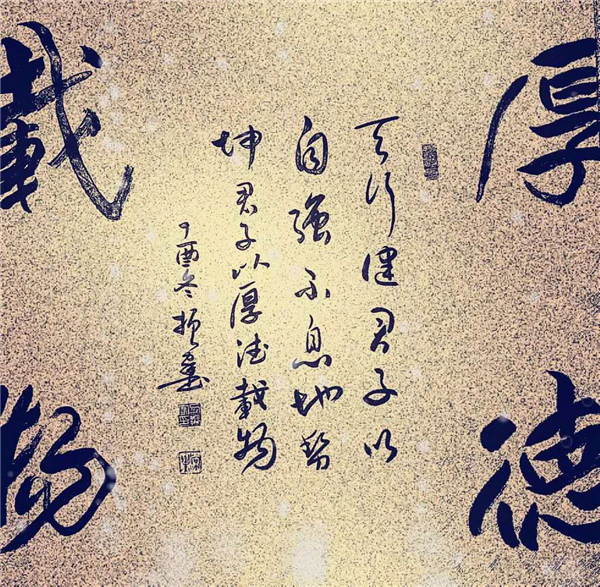 厚德
天行健君子以
自強不息地勢
坤君子以厚德載物
丁酉冬振
載物